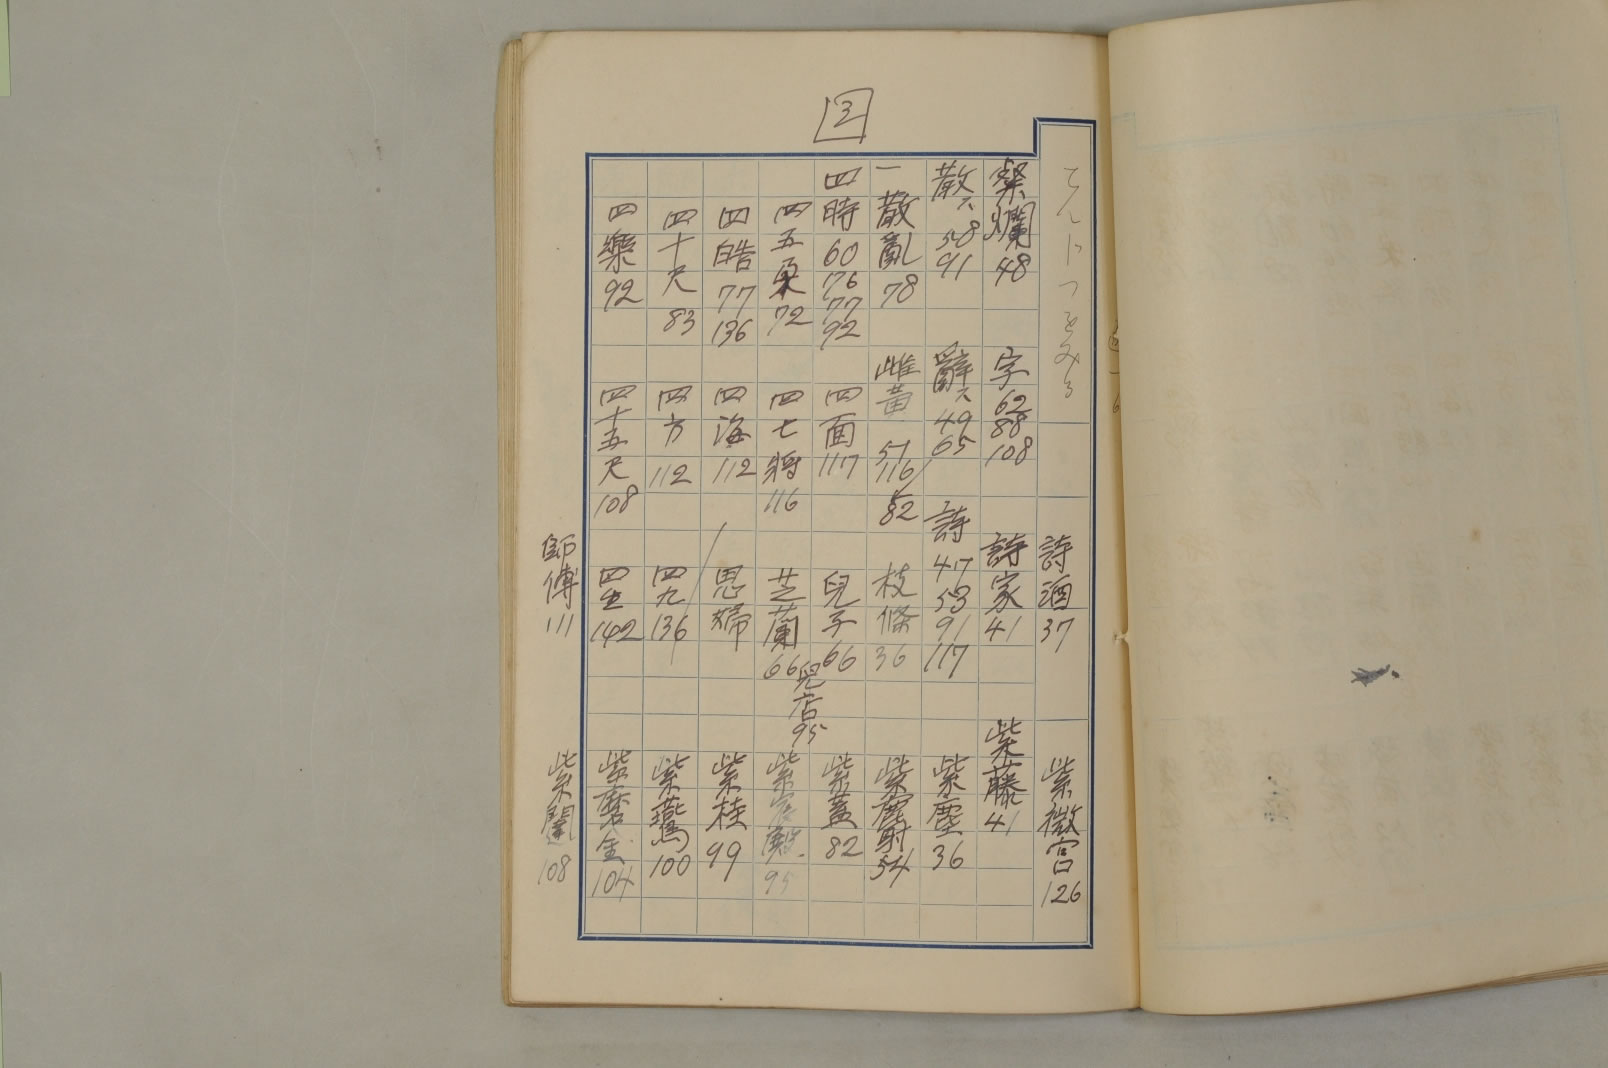 3
詩酒 37
紫微宮 126
燦爛 48
字 62 88 108
詩家 41
紫藤 41
散 58 91
辭 49 65
詩 47 53 91 117
紫塵 36
一散亂 78
雌黄 51 116 82
枝條 36
紫麝 54
四時 60 76 77 92
四面 117
兒子 66
紫蓋 82
四五 72
四七將 116
芝蘭 66
兒店 95
紫宸殿 95
四皓 77 136
四海 112
思婦
紫桂 99
四十尺 83
四方 112
四九 136
紫鸞 100
四樂 92
四十五尺 108
四生 142
紫磨金 104
師傅 111
紫闥 108